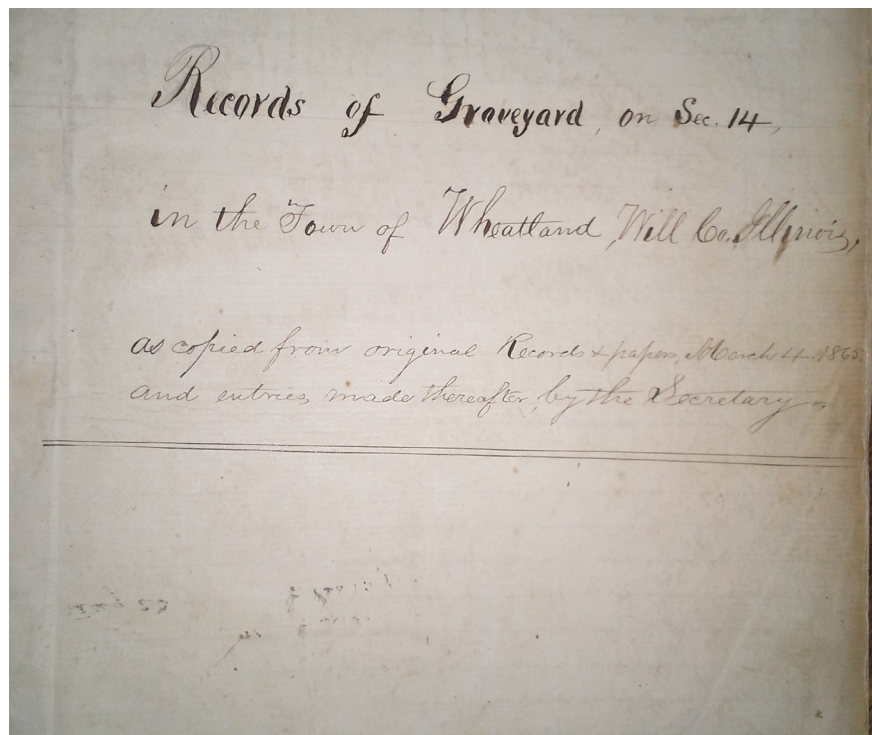 Records of Graveyard, on Sec. 14,
in the Town of Wheatland, Will Co. Illinois,
as copied from original Records & papers, March 4. 1865.
and entries made thereafter, by the Secretary.